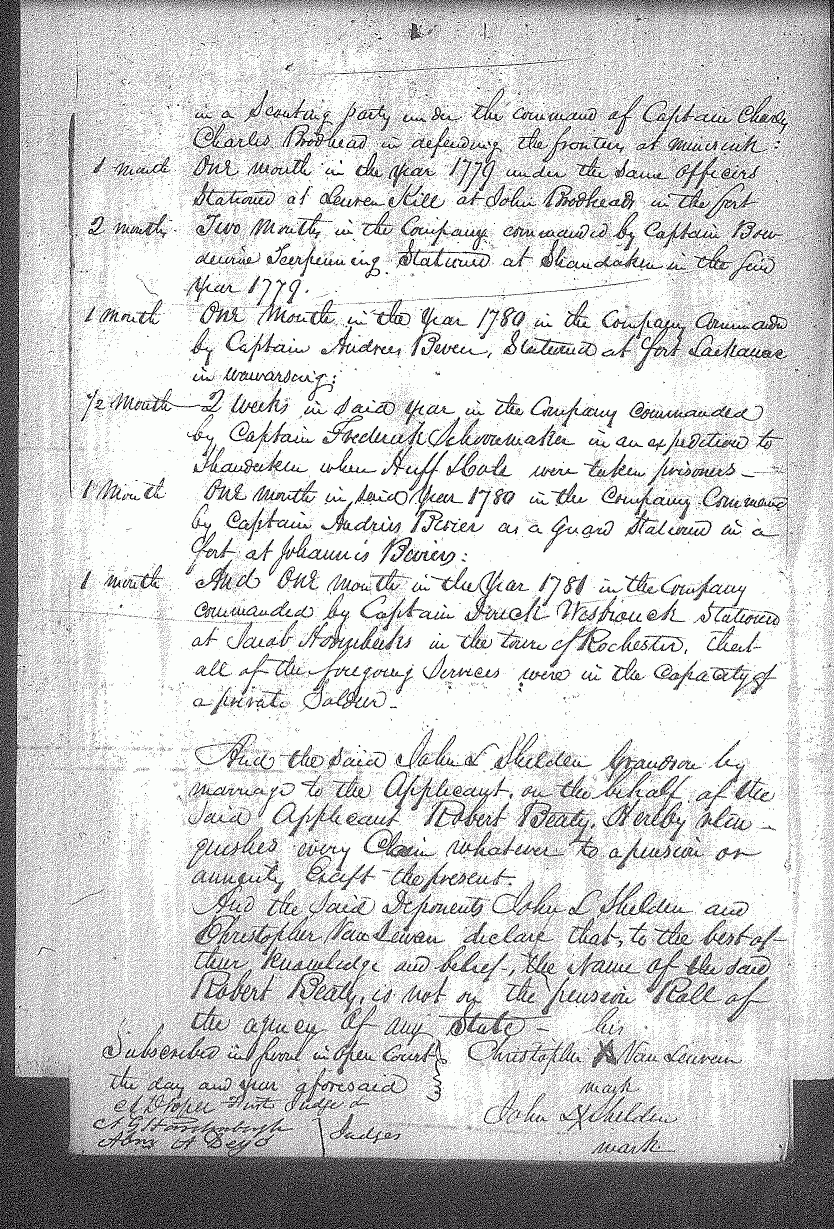 in a Scouting party under the command of Captain Charls
Charles Brodhead in defending the frontiers at minisink:
1 month One month in the year 1779 under the same officers
Stationed at Leuren Kill at John Brodheads in the fort
2 months Two Months in the Company commanded by Captain Bow-
dewine Teerpenning Stationed at Shandaken in the
year 1779.
1 month One Month in the Year 1780 in the Company Commanded
by Captain Andries Bevier, Stationed at fort Lackawac
in wawarsing:
1/2 Month 2 Weeks in said year in the Company commanded
by Captain Frederick Schoonmaker in an expedition to
Shandeken when Huff &Cole were taken prisoners -
1 Month One month in said Year 1780 in the Company Command
by Captain Andries Bevier as a Guard Stationed in a
fort at Johannis Beviers:
1 month And One month in the Year 1781 in the Company
commanded by Captain Dirick Wesbrouck Stationed
at Jacob Hornbecks in the town of Rochester, that
all of the foregoing Services were in the Capacity of
a private Soldier -
And the said John L Shelden Grandson by
marriage to the Applicant, on the behalf of the
said Applicant Robert Beaty. Hereby relin-
quishes every Claim whatever to a pension or
annuity Except the present.
And the said Deponents John L Shelden and
Christopher Van Leuven declare that, to the best of
their Knowledge and belief, the Name of the said
Robert Beaty, is not on the pension Roll of
the agency of any State - his
Subscribed in open Court Christopher X Van Leuven
the day and year aforesaid mark
A D Soper First Judge & John L X Shelden
A G Hardenbergh Judges
Abm A Deyo mark